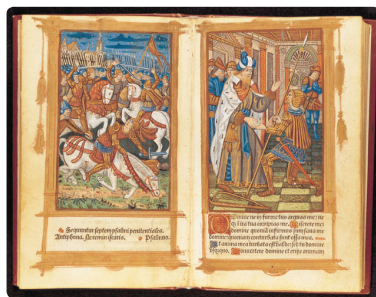 Sequuntur septem psalmi penitentiales.
Antiphona. Ne reminiscaris. Psalmus.
Domine ne in furore tuo arguas me: ne
in ira tua corripias me. Miserere mei
domine quoniam infirmus sum sana me
domine quoniam conturbata sunt ossa mea.
Et anima mea turbata est valde: sed tu domine
usquequo. Convertere domine et eripe animam